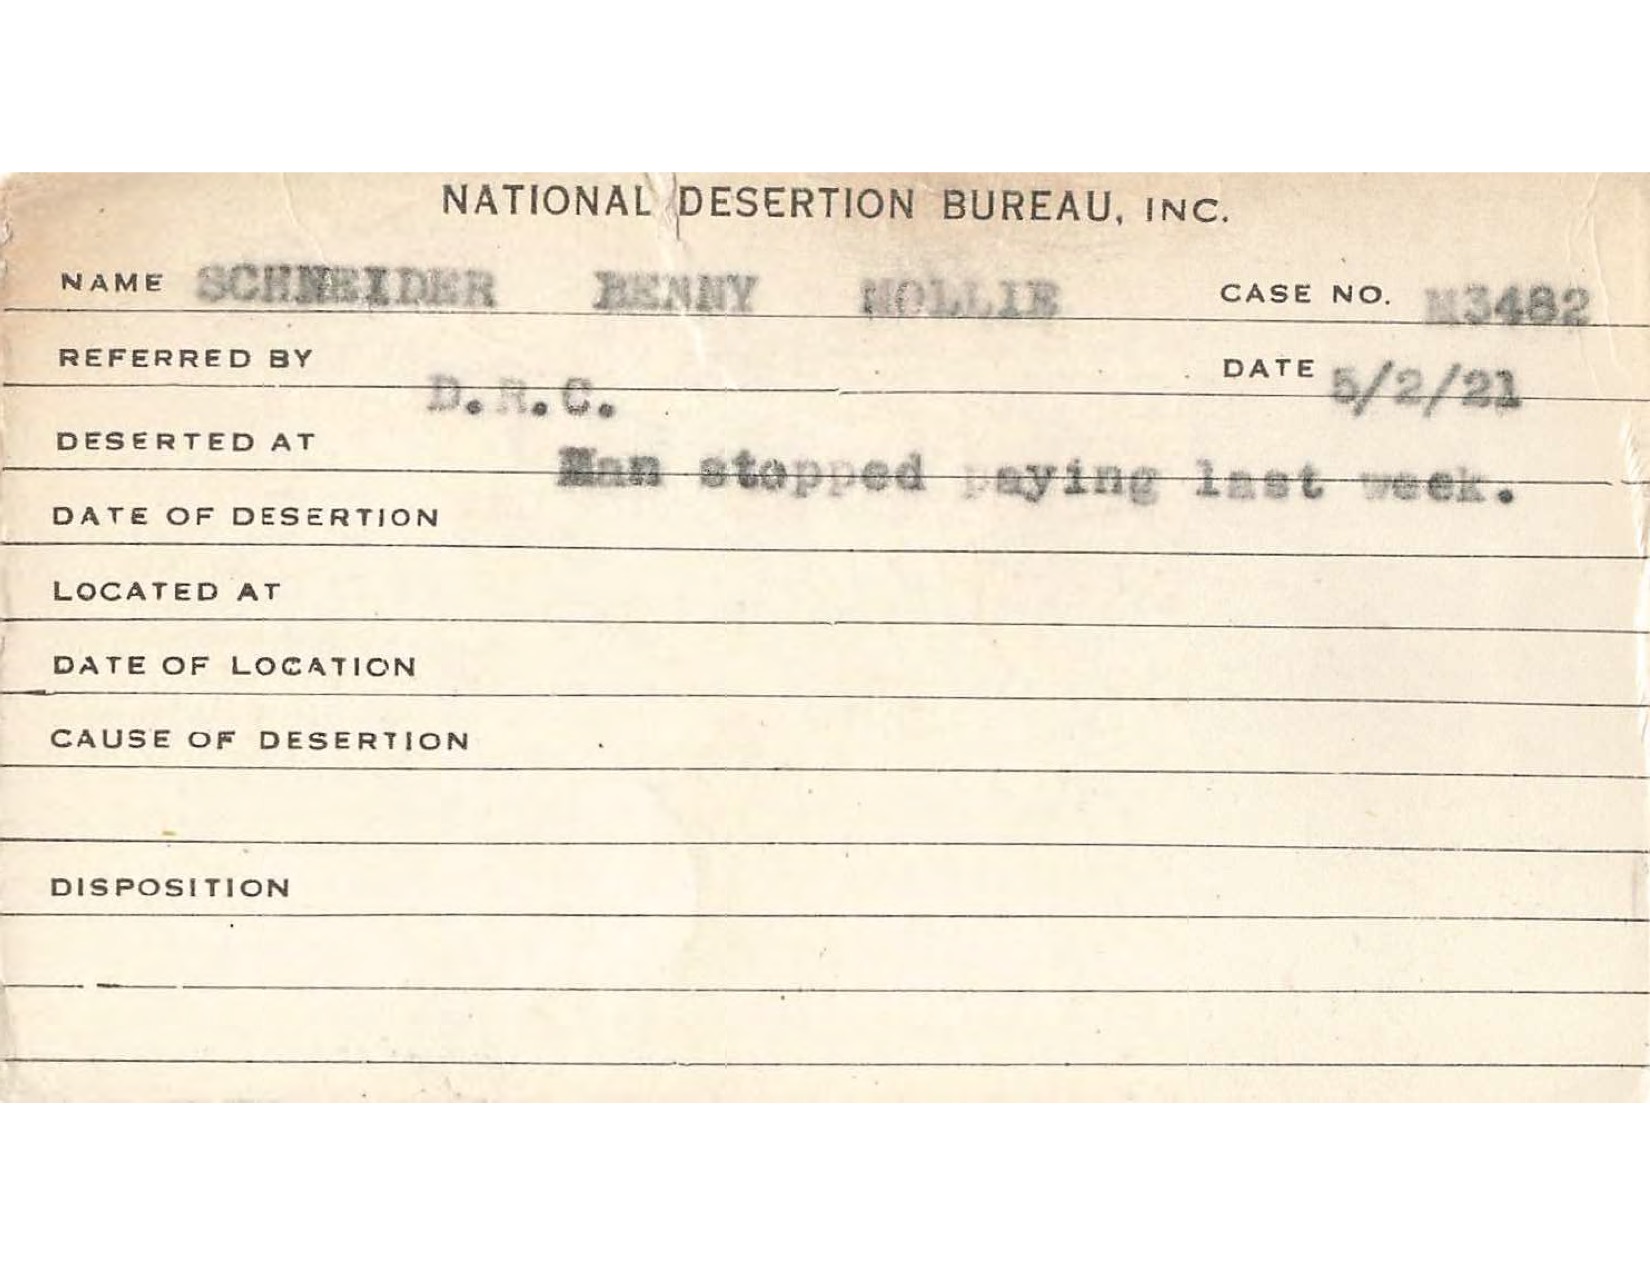 NATIONAL DESERTION BUREAU, INC.
NAME SCHNEIDER BENNY MOLLIE CASE NO. M3482
REFERRED BY D.R.C. DATE 5/2/21
DESERTED AT Man stopped paying last week.
DATE OF DESERTION
LOCATED AT
DATE OF LOCATION
CAUSE OF DESERTION
DISPOSITION